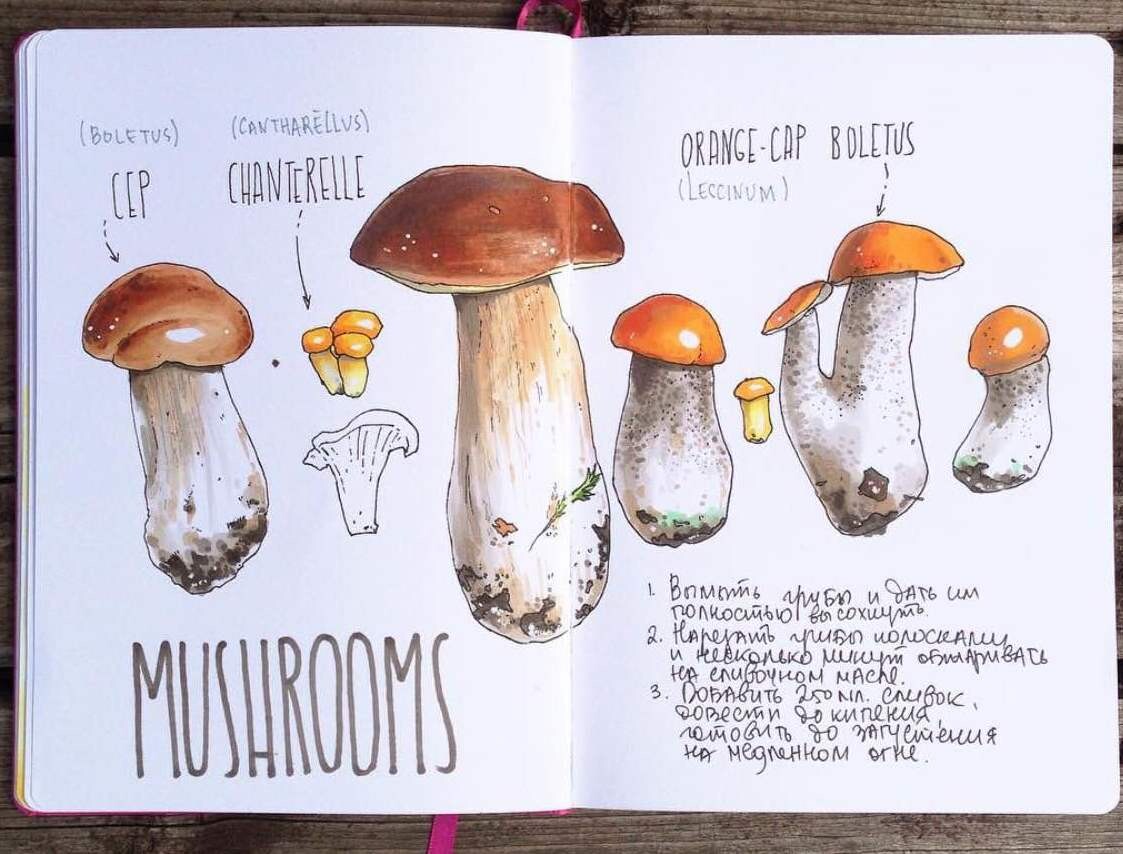 (BOLETUS)
CEP
(CANTHARĒLLUS)
CHANTERELLE
MUSHROOMS
ORANGE-CAP BOLETUS
(LECCINUM)
1. Вымыть грибы и дать им
полностью высохнуть.
2. Нарезать грибы полосками
и несколько минут обжаривать
на сливочном масле.
3. Добавить 250 мл. сливок,
довести до кипения,
готовить до загустения
на медленном огне.